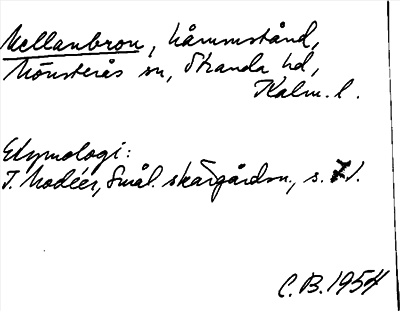 Mellanbron, håmmstånd,
Mönsterås sn, Stranda hd,
Kalm. l.
Etymologi:
I. Modéer, Smål. skärgårdsn., s. 71.
C.B. 1954